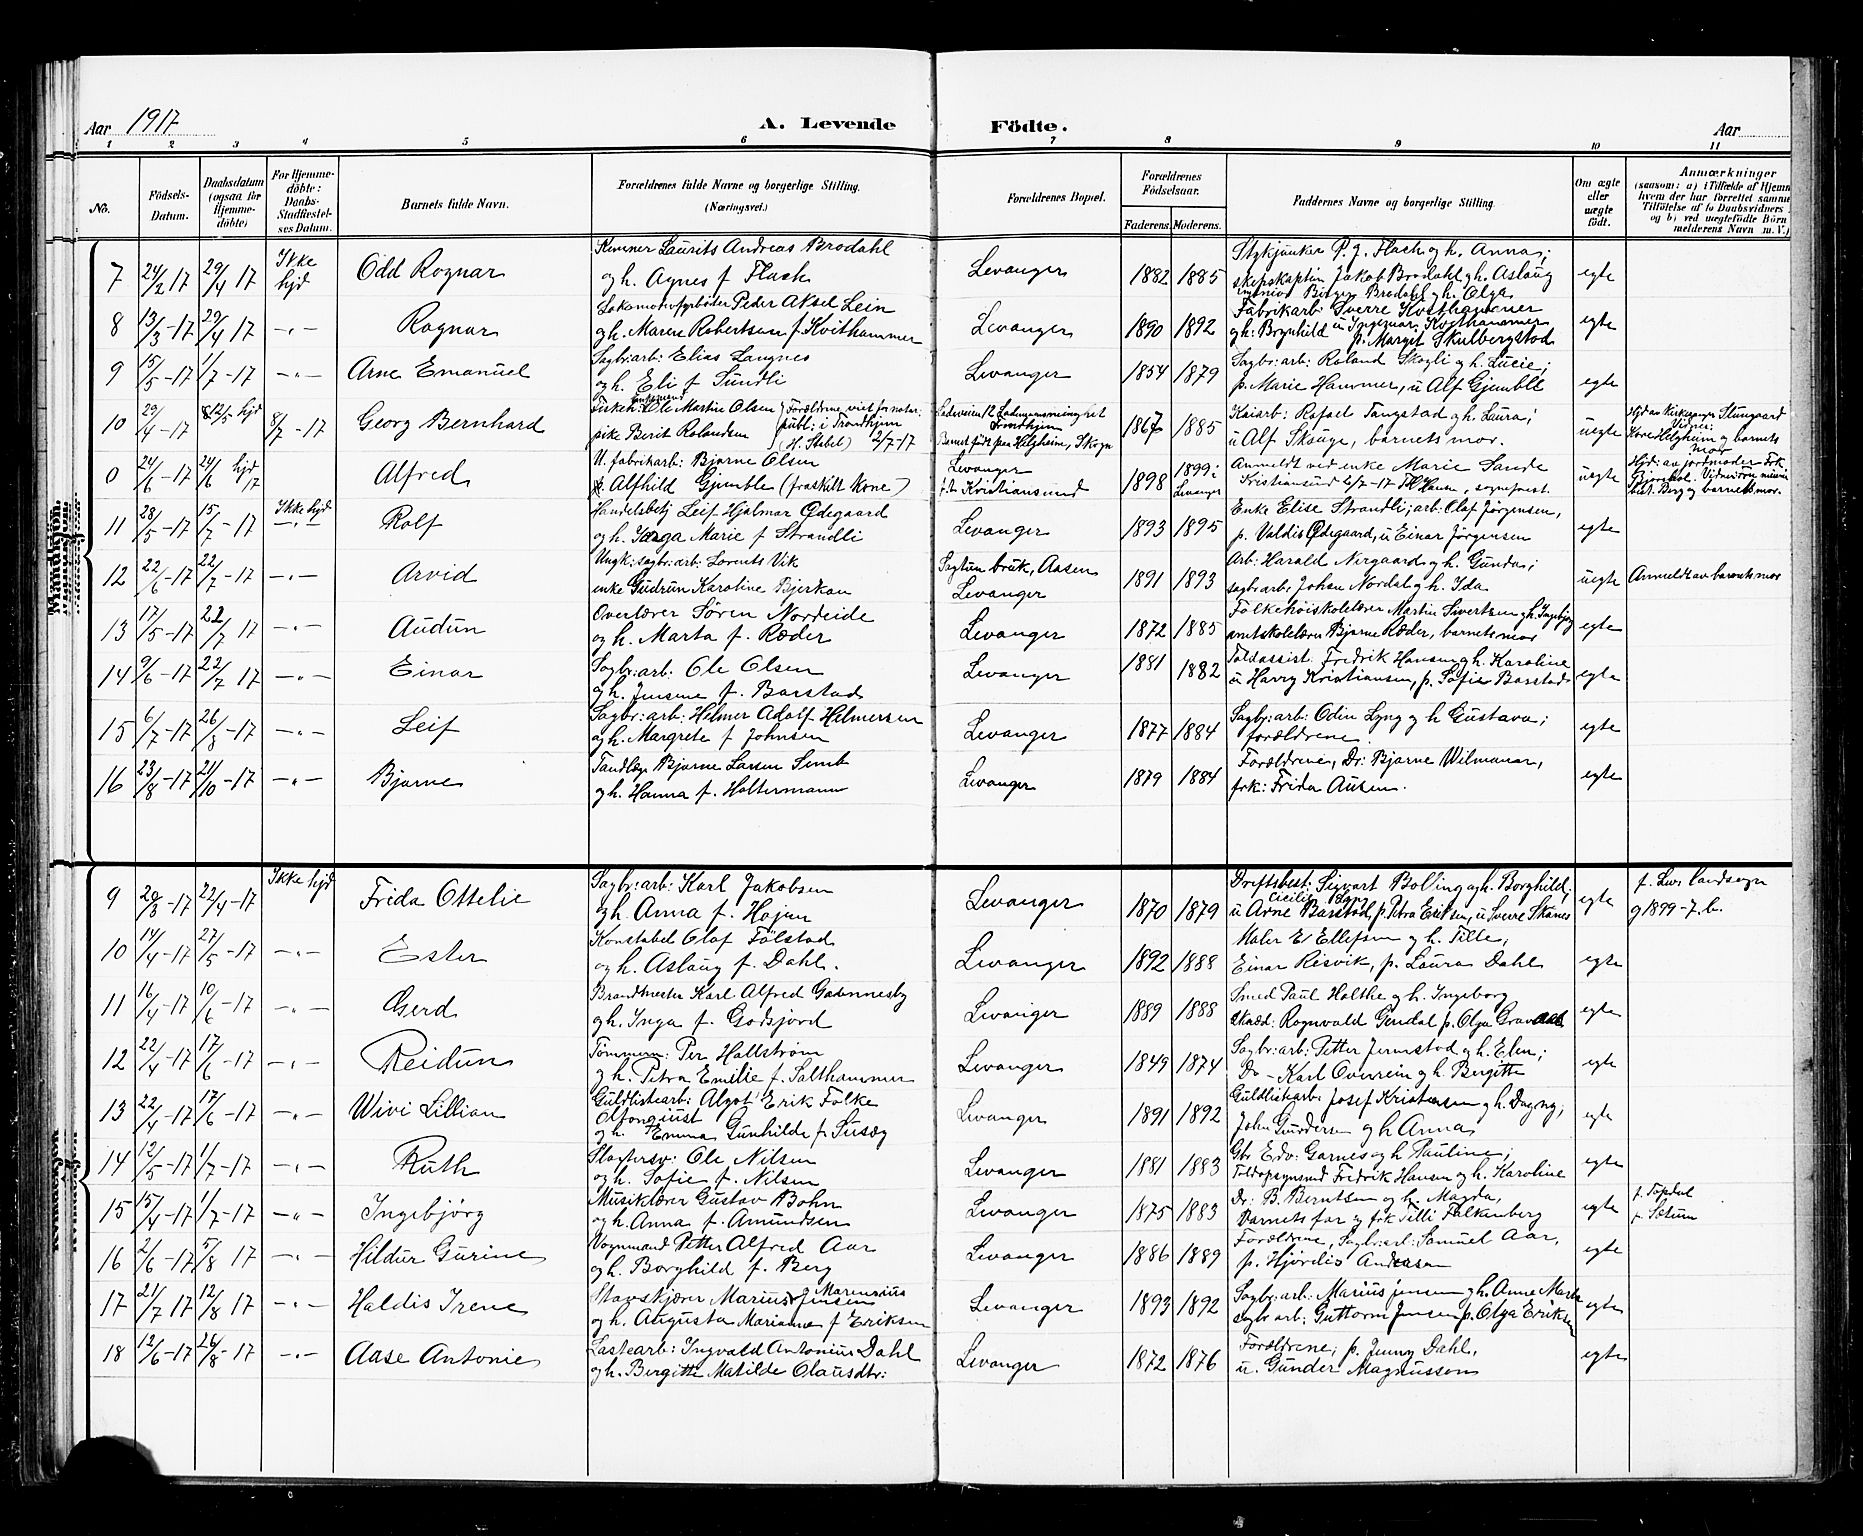 Aar 1917
A. Levende Födte.
Aar
1 2 3 4 5 6 7 8 9 10 11
No.
Födsels-Datum.
Daabsdatum (ogsaa för Hjemme-döbte)
For Hjemme-döbte: Daabs-Stadfæstel-ses Datum.
Barnets fulde Navn.
Forældrenes fulde Navne og borgerlige Stilling. (Næringsvei.)
Forældrenes Bopæl.
Forældrenes Födselsaar.
Faderens. Moderens.
Faddernes Navne og borgerlige Stilling.
Om ægte eller uægte födt.
Anmærkninger
(saasom: a) i Tilfælde af Hjemm
hvem der har forrettet samme
Tilföielse af to Daabsvidners
og b) ved uegtefödte Börn
melderens Navn m. V.)
Mandkjön.
7 24/2 17 29/4 17 Ikke hjd Odd Ragnar
Kemner Laurits Andreas Brodahl
og h. Agnes f. Flach
Levanger 1882 1885
Stykjunker P. J. Flach og h. Anna;
skibskaptin Jakob Brodahl og h. Aslaug
Birger Brodahl og h. Olga
egte
8 13/3-17 29/4 17 -"- Ragnar
Lokomotivfyrböter Peder Aksel Lein
og h. Maren Robertson f. Kvithammer
Levanger 1890 1892
Fabrikarb: Sverre Kvithammer
og h: Brynhild u Ingemar Kvithammer
p. Margit Skulbergstad
egte
9 15/5-17 1/7-17 -"- Arne Emanuel
Sagbr: arb: Elias Langnes
og h. Eli f Sundli
Levanger 1854 1879
Sagbr: arb: Roland Skogli og h. Lucie;
p. Marie Hammer, u Alf Gjemble
egte
10 29/4-17 12/5 hjd 8/7-17 Georg Bernhard
Ole Martin Olsen
pike Berit Rolandsen
Forældrene viet for notar. publ: i Trondhjem (H. Stabel) 2/7-17
Trondhjem
Barnet født paa Helgheim, Skogn
1867 1885
Kaiarb: Rafael Tangstad og h. Laura;
u Alf Skjuge, barnets mor.
uegte
Hjd av Kirkesanger Stungaard
Vidner:
Kone Helgheim og barnets
mor
0 24/6-17 24/6 hjd 17 Alfred
U. fabrikarb: Bjarne Olsen
Alfhild Gjemble (fraskilt kone)
Levanger
f. t. Kristiansund
1898 1899 i Levanger
Anmeldt ved enke Marie Sande
Kristiansund sogneprest.
uegte
Hjd: av jordmoder Frk
Bjørskol. Vidner:
best. Berg og barnets mor.
11 28/5-17 15/7-17 Ikke hjd -"- Rolf
Handelsbetj Leif Hjalmar Ødegaard
og h. Inga Marie f Strandli
Levanger 1893 1895
Enke Elise Strandli; arb: Olaf Jørgensen,
p. Valdis Ødegaard, u Einar Jørgensen
egte
12 22/6-17 22/7-17 -"- Arvid
Ungk: sagbr: arb: Lorents Vik
enke Gudrun Karoline Bjerkan
Sagtun bruk, Aasen
Levanger
1891 1893
Arb: Harald Nirgaard og h. Gunda;
sagbr arb: Johan Nordal og h. Ida
uegte
Anmeldt av barnets mor
13 17/5-17 22/7 17 -"- Audun
Overlærer Sören Nordeide
og h. Marta f. Ræder
Levanger 1872 1885
Folkehøiskolelærer Martin Sivertsen og h. Ingebjørg
amtskolelærer Bjarne Ræder, barnets mor
egte
14 9/6-17 22/7 17 -"- Einar
Sagbr: arb: Ole Olsen
og h. Jensine f. Barstad
Levanger 1881 1882
Toldassist. Fredrik Hansen og h. Karoline
u Harry Kristiansen, p. Sofie Barstad
egte
15 6/7-17 26/8-17 -"- Leif
Sagbr: arb: Helmer Adolf Helmersen
og h. Margrete f Johnsen
Levanger 1877 1884
Sagbr: arb: Odin Lyng og h Gustava;
forældrene.
egte
16 23/8-17 21/10-17 -"- Bjarne
Tandlæge Bjarne Larsen Semb
og h. Hanna f. Holtermann
Levanger 1879 1884
Forældrene, Dr: Bjarne Wilmann,
frk: Frida Ausen.
egte
Kvindekjön
9 20/3-17 22/4-17 Ikke hjd Frida Ottelie
Sagbr: arb: Karl Jakobsen
og h. Anna f. Hojem
Levanger 1870 1879
Driftsbest: Sigvart Bolling og h. Borghild;
u Arne Barstad, p. Petra Eriksen, u Sverre Skånes
egte
f. Lev. landsogn
g 1899-7. b.
10 14/4-17 27/5-17 -"- Ester
Konstabel Olaf Følstad
og h. Aslaug f. Dahl.
Levanger 1892 1888
Maler E. Ellefsen og h. Tille,
Einar Risvik, p. Laura Dahl
egte
11 16/4-17 10/6-17 -"- Gerd
Brandmester Karl Alfred Grønnesby
og h. Inga f. Godsjord
Levanger 1889 1888
Smed Paul Holthe og h. Ingeborg
Rognvald Gendal p. Olga
egte
12 22/4-17 17/6-17 -"- Reidun
Tømmerm: Per Hallstrøm
og h. Petra Emilie f. Salthammer
Levanger 1849 1874
Sagbr: arb: Petter Jermstad og h. Elen;
Do - Karl Overrein og h. Bergitte
egte
13 22/4-17 17/6-17 -"- Wivi Lillian
Guldlistearb: Algot Erik Folke
og h. Emma Gunhilde f. Susæg
Levanger 1891 1892
Guldlistearb: Josef Kristensen og h. Dagny,
John Gundersen og h Anna
egte
14 12/5-17 1/7-17 -"- Ruth
Slagtersv: Ole Nilsen
og h. Sofie f. Nilsen
Levanger 1881 1883
Gbr Edv: Garnes og h. Pauline;
Toldopsynsmd Fredrik Hansen og h. Karoline
egte
15 15/4-17 1/7-17 -"- Ingebjörg
Musiklærer Gustav Bohn
og h. Anna f. Amundsen
Levanger 1875 1883
Dr: B. Berntsen og h. Magda,
Barnets far og frk Tilli Falkenberg
egte
f. Topdal
f. Sætum
16 2/6-17 5/8 17 -"- Hildur Gurine
Vognmand Petter Alfred Aar
og h. Borghild f. Berg
Levanger 1886 1889
Forældrene, Sagbr: arb: Samuel Aar,
p. Hjördis Andersen
egte
17 21/7 17 12/8 17 -"- Haldis Irene
Stavskjærer Marius Marensius Jensen
og h. Augusta Marianne f Eriksen
Levanger 1893 1892
Sagbr: arb: Marius Jensen og h. Anne Marta
sagbr arb: Guttorm Jensen p. Olga Eriksen
egte
18 12/6-17 26/8-17 -"- Aase Antonie
Lastearb: Ingvald Antonius Dahl
og h. Bergitte Matilde Olausdtr:
Levanger 1872 1876
Forældrene; p. Jenny Dahl,
u. Gunder Magnusson
egte